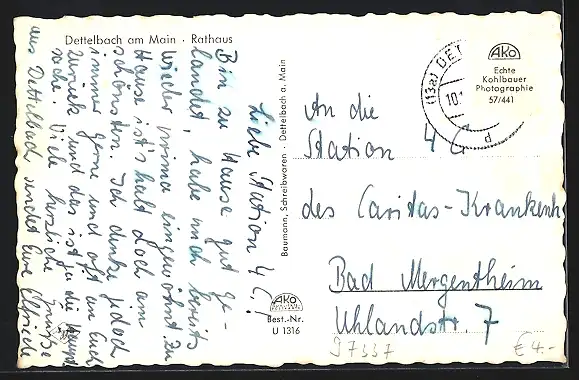 Dettelbach am Main · Rathaus
Liebe Station 4 C!
Bin zu Hause gut ge-
landet, habe mich bereits
wieder prima eingewöhnt. Zu
Hause ist's halt doch am
schönsten. Ich denke jedoch
immer gerne und oft an Euch
zurück und das ist ja die Haupt
sache. Viele herzliche Grüsse
aus Dettelbach sendet Eure
Baumann, Schreibwaren · Dettelbach a. Main
AKO
Best.-Nr.
U 1316
(13a) DET
10.
d
AKO
Echte
Kohlbauer
Photographie
57/441
An die
Station 4 C
des Caritas-Krankenh
Bad Mergentheim
Uhlandstr. 7
97337
€ 4.-